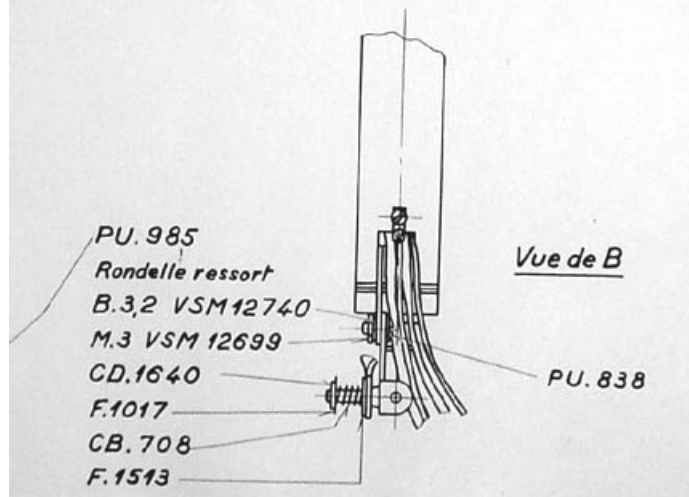 PU.985
Rondelle ressort
B.3,2 VSM 12740
M.3 VSM 12699
CD.1640
F.1017
CB.708
F.1513
Vue de B
PU.838